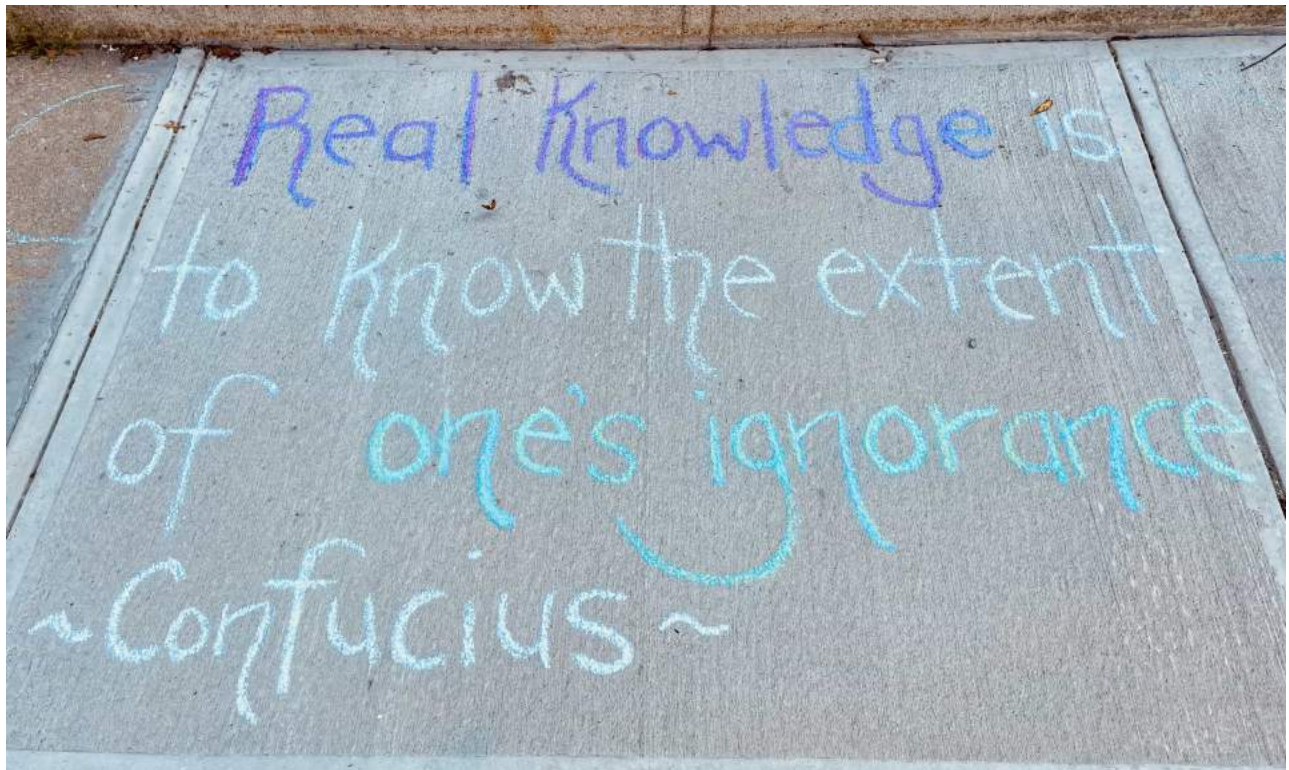 Real Knowledge is
to know the extent
of one's ignorance
~Confucius~